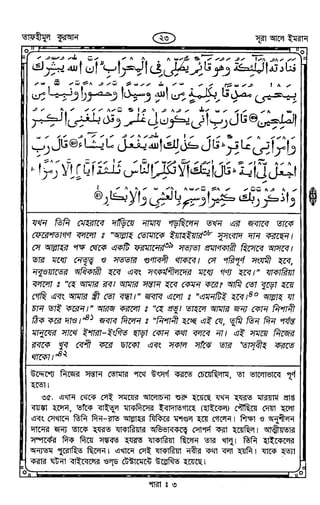 তাফহীমুল কুরআন
২৩
সূরা আলে ইমরান
فَنَادَتْهُ الْمَلٰٓئِكَةُ وَهُوَ قَآئِمٌ يُّصَلِّىْ فِى الْمِحْرَابِ ۙ اَنَّ اللّٰهَ يُبَشِّرُكَ
بِيَحْيٰى مُصَدِّقًا ۢ بِكَلِمَةٍ مِّنَ اللّٰهِ وَسَيِّدًا وَّحَصُوْرًا وَّنَبِيًّا مِّنَ
الصّٰلِحِيْنَ ۝ قَالَ رَبِّ اَنّٰى يَكُوْنُ لِىْ غُلٰمٌ وَّقَدْ بَلَغَنِىَ الْكِبَرُ
وَامْرَاَتِىْ عَاقِرٌ ؕ قَالَ كَذٰلِكَ اللّٰهُ يَفْعَلُ مَا يَشَآءُ ۝ قَالَ رَبِّ
اجْعَلْ لِّىْٓ اٰيَةً ؕ قَالَ اٰيَتُكَ اَلَّا تُكَلِّمَ النَّاسَ ثَلٰثَةَ اَيَّامٍ اِلَّا رَمْزًا ؕ
وَاذْكُرْ رَّبَّكَ كَثِيْرًا وَّسَبِّحْ بِالْعَشِىِّ وَالْاِبْكَارِ ۝
যখন তিনি মেহরাবে দাঁড়িয়ে নামায পড়ছিলেন তখন এর জবাবে তাকে
ফেরেশতাগণ বললো : “আল্লাহ তোমাকে ইয়াহইয়ার৩৮ সুসংবাদ দান করছেন।
সে আল্লাহর পক্ষ থেকে একটি ফরমানের৩৯ সত্যতা প্রমাণকারী হিসেবে আসবে।
তার মধ্যে নেতৃত্ব ও সততার গুণাবলী থাকবে। সে পরিপূর্ণ সংযমী হবে,
নবুওয়াতের অধিকারী হবে এবং সৎকর্মশীলদের মধ্যে গণ্য হবে।” যাকারিয়া
বললো : “হে আমার রব! আমার সন্তান হবে কেমন করে? আমি তো বুড়ো হয়ে
গেছি এবং আমার স্ত্রী তো বন্ধ্যা।” জবাব এলো : “এমনটিই হবে।৪০ আল্লাহ যা
চান তাই করেন।” আরজ করলো : “হে প্রভু! তাহলে আমার জন্য কোন নিশানী
ঠিক করে দাও।৪১ জবাব দিলেন : “নিশানী হচ্ছে এই যে, তুমি তিন দিন পর্যন্ত
মানুষের সাথে ইশারা-ইংগিত ছাড়া কোন কথা বলবে না। এই সময়ে নিজের
রবকে খুব বেশী করে ডাকো এবং সকাল সাঁঝে তার ‘তাসবীহ করতে
থাকো।৪২
উদ্দেশ্যে নিজের সন্তান তোমার পথে উৎসর্গ করতে চেয়েছিলাম, তা ভালোভাবে পূর্ণ
হতো।
৩৫. এখান থেকে সেই সময়ের আলোচনা শুরু হয়েছে যখন হযরত মারয়াম প্রাপ্ত
বয়স্কা হলেন, তাঁকে বাইতুল মাকদিসের ইবাদাতগাহে (হাইকেল) পৌঁছিয়ে দেয়া হলো
এবং সেখানে তিনি দিন-রাত আল্লাহর যিকিরে মশগুল হয়ে গেলেন। শিক্ষা ও অনুশীলন
দানের জন্য তাকে হযরত যাকারিয়ার অভিভাবকত্বে সোপর্দ করা হয়েছিল। আত্মীয়তার
সম্পর্কের দিক দিয়ে সম্ভবত হযরত যাকারিয়া ছিলেন তার খালু। তিনি হাইকেলের
অন্যতম পুরোহিত ছিলেন। এখানে সেই যাকারিয়া নবীর কথা বলা হয়নি। যাকে হত্যা
করার ঘটনা বাইবেলের ওল্ড টেস্টামেন্টে উল্লেখিত হয়েছে।
পারা : ৩